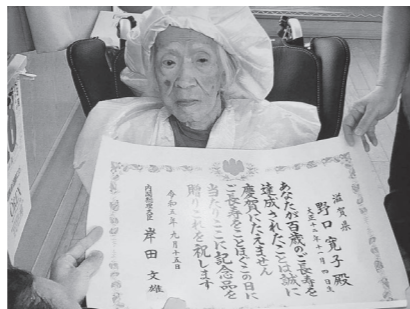 滋賀県
野口寛子殿
大正十二年十一月四日生
あなたが百歳のご長寿を
達成されたことは誠に
慶賀にたえません
ご長寿をことほぐこの日に
当たりここに記念品を
贈りこれを祝します
令和五年九月十五日
内閣総理大臣 岸田文雄